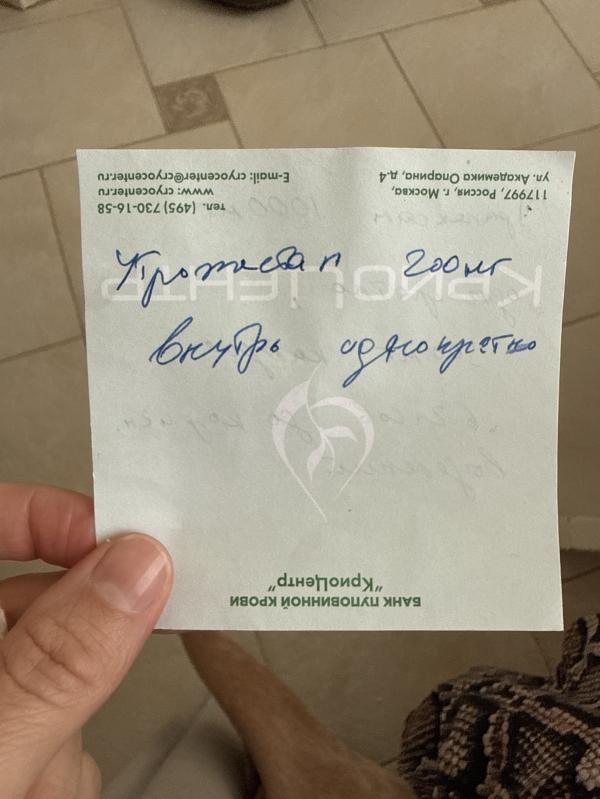 Утрожестан 200мг
внутрь однократно
БАНК ПУПОВИННОЙ КРОВИ
"КриоЦентр"
КРИОЦЕНТР
117997, Россия, г. Москва,
ул. Академика Опарина, д.4
тел. (495) 730-16-58
www: cryocenter.ru
E-mail: cryocenter@cryocenter.ru